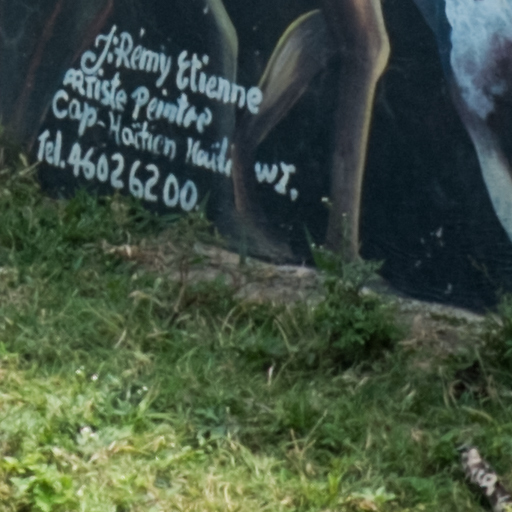 J: Rémy Etienne
Artiste Peintre
Cap-Haïtien Haïti WI.
Tel. 46026200